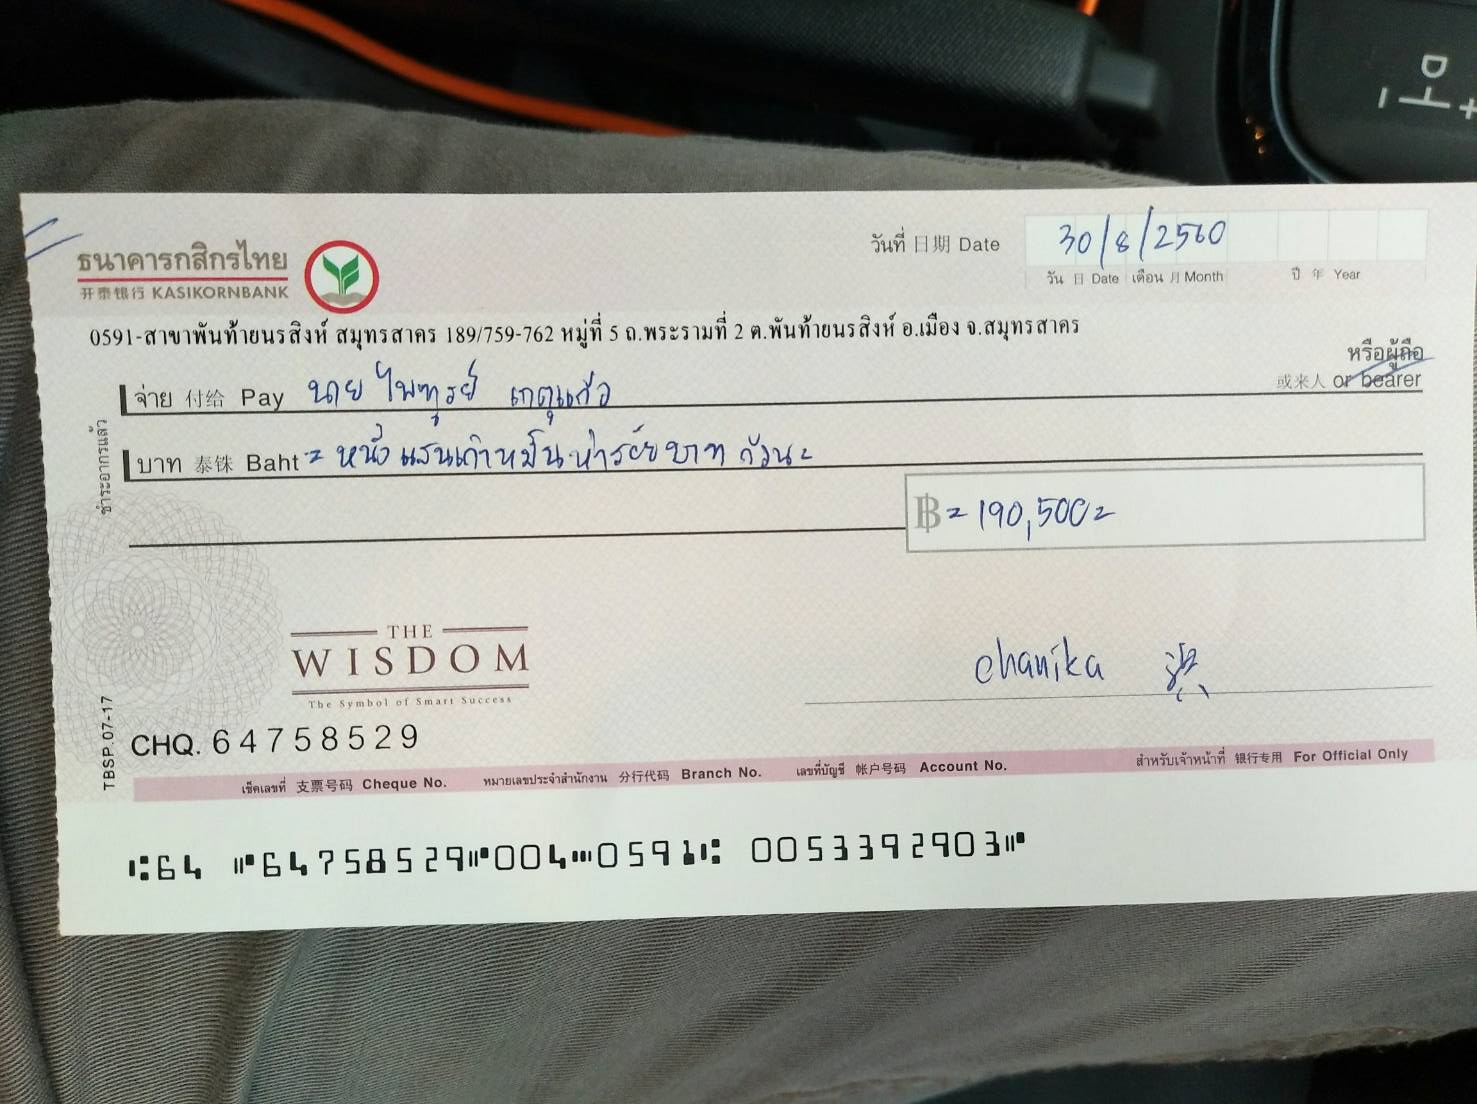 ธนาคารกสิกรไทย
开泰银行 KASIKORNBANK
วันที่ 日期 Date 30/8/2560
วัน 日 Date เดือน 月 Month ปี 年 Year
0591-สาขาพันท้ายนรสิงห์ สมุทรสาคร 189/759-762 หมู่ที่ 5 ถ.พระรามที่ 2 ต.พันท้ายนรสิงห์ อ.เมือง จ.สมุทรสาคร
หรือผู้ถือ
或来人 or bearer
จ่าย 付给 Pay นาย ไพฑูรย์ เกตุแก้ว
บาท 泰铢 Baht = หนึ่งแสนเก้าหมื่นห้าร้อยบาทถ้วน =
฿ = 190,500 =
ชำระอากรแล้ว
THE
WISDOM
The Symbol of Smart Success
chanika
TBSP. 07-17
CHQ. 64758529
เช็คเลขที่ 支票号码 Cheque No. หมายเลขประจำสำนักงาน 分行代码 Branch No. เลขที่บัญชี 帐户号码 Account No. สำหรับเจ้าหน้าที่ 银行专用 For Official Only
⑆64 ⑈64758529⑈004⑉0591⑆ 0053392903⑈
D
- +